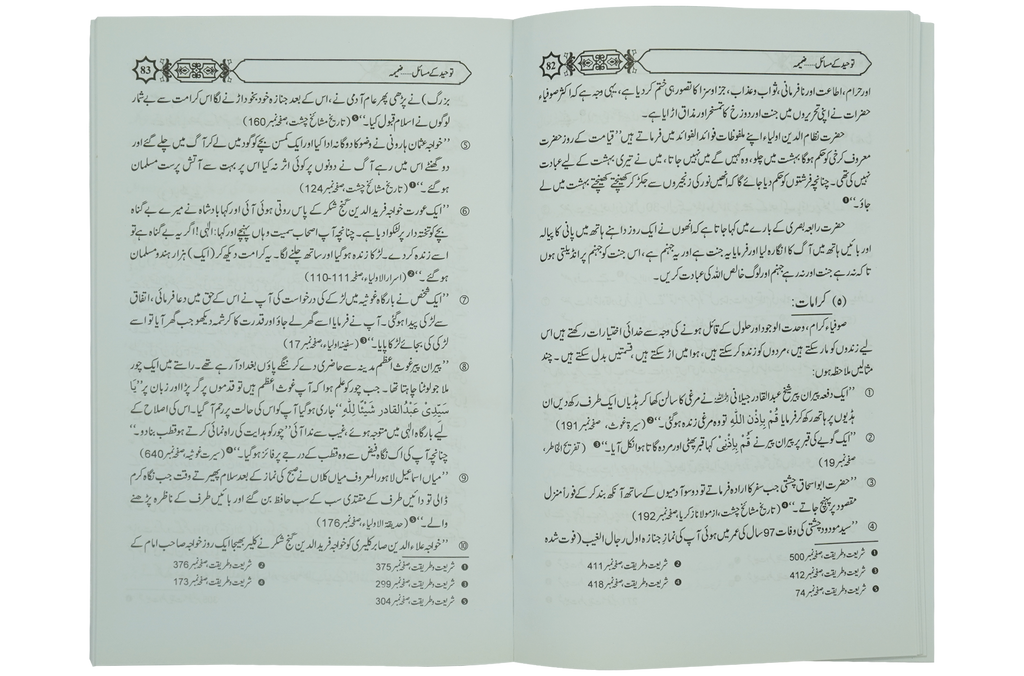 82
توحید کے مسائل.....ضمیمہ
اور حرام، اطاعت اور نافرمانی، ثواب و عذاب، جزا و سزا کا تصور ہی ختم کر دیا ہے، یہی وجہ ہے کہ اکثر صوفیاء
حضرات نے اپنی تحریروں میں جنت اور دوزخ کا تمسخر اور مذاق اڑایا ہے۔
حضرت نظام الدین اولیاء اپنے ملفوظات فوائد الفوائد میں فرماتے ہیں "قیامت کے روز حضرت
معروف کرخی کو حکم ہوگا بہشت میں چلو، وہ کہیں گے میں نہیں جاتا، میں نے تیری بہشت کے لیے عبادت
نہیں کی تھی۔ چنانچہ فرشتوں کو حکم دیا جائے گا کہ انھیں نور کی زنجیروں سے جکڑ کر کھینچتے کھینچتے بہشت میں لے
جاؤ۔"❶
حضرت رابعہ بصری کے بارے میں کہا جاتا ہے کہ انھوں نے ایک روز داہنے ہاتھ میں پانی کا پیالہ
اور بائیں ہاتھ میں آگ کا انگارہ لیا اور فرمایا یہ جنت ہے اور یہ جہنم ہے، اس جنت کو جہنم پر انڈیلتی ہوں
تا کہ نہ رہے جنت اور نہ رہے جہنم اور لوگ خالص اللہ کی عبادت کریں۔
(۵) کرامات:
صوفیاء کرام، وحدت الوجود اور حلول کے قائل ہونے کی وجہ سے خدائی اختیارات رکھتے ہیں اس
لیے زندوں کو مار سکتے ہیں، مردوں کو زندہ کر سکتے ہیں، ہوا میں اڑ سکتے ہیں، قسمتیں بدل سکتے ہیں۔ چند
مثالیں ملاحظہ ہوں:
① "ایک دفعہ پیران پیر شیخ عبدالقادر جیلانی رحمہ اللہ نے مرغی کا سالن کھا کر ہڈیاں ایک طرف رکھ دیں ان
ہڈیوں پر ہاتھ رکھ کر فرمایا قُمْ بِاِذْنِ اللّٰهِ تو وہ مرغی زندہ ہوگئی۔"❷ (سیرۃ غوث، صفحہ نمبر 191)
② "ایک گویے کی قبر پر پیران پیر نے قُمْ بِاِذْنِیْ کہا قبر پھٹی اور مردہ گاتا ہوا نکل آیا۔"❸ (تفریح الخاطر،
صفحہ نمبر 19)
③ "حضرت ابو اسحاق چشتی جب سفر کا ارادہ فرماتے تو دو سو آدمیوں کے ساتھ آنکھ بند کر کے فوراً منزل
مقصود پر پہنچ جاتے۔"❹ (تاریخ مشائخ چشت، از مولانا زکریا، صفحہ نمبر 192)
④ "سید مودود چشتی کی وفات 97 سال کی عمر میں ہوئی آپ کی نماز جنازہ اول رجال الغیب (فوت شدہ
❶ شریعت و طریقت، صفحہ نمبر 500
❷ شریعت و طریقت، صفحہ نمبر 411
❸ شریعت و طریقت، صفحہ نمبر 412
❹ شریعت و طریقت، صفحہ نمبر 418
❺ شریعت و طریقت، صفحہ نمبر 74
83
توحید کے مسائل.....ضمیمہ
بزرگ) نے پڑھی پھر عام آدمی نے، اس کے بعد جنازہ خود بخود اڑنے لگا اس کرامت سے بے شمار
لوگوں نے اسلام قبول کیا۔"❶ (تاریخ مشائخ چشت، صفحہ نمبر 160)
⑤ "خواجہ عثمان ہارونی نے وضو کا دوگانہ ادا کیا اور ایک کمسن بچے کو گود میں لے کر آگ میں چلے گئے اور
دو گھنٹے اس میں رہے آگ نے دونوں پر کوئی اثر نہ کیا اس پر بہت سے آتش پرست مسلمان
ہوگئے۔"❶ (تاریخ مشائخ چشت، صفحہ نمبر 124)
⑥ "ایک عورت خواجہ فرید الدین گنج شکر کے پاس روتی ہوئی آئی اور کہا بادشاہ نے میرے بے گناہ
بچے کو تختہ دار پر لٹکوا دیا ہے۔ چنانچہ آپ اصحاب سمیت وہاں پہنچے اور کہا: الٰہی! اگر یہ بے گناہ ہے تو
اسے زندہ کر دے۔ لڑکا زندہ ہوگیا اور ساتھ چلنے لگا۔ یہ کرامت دیکھ کر (ایک) ہزار ہندو مسلمان
ہوگئے۔"❷ (اسرار الاولیاء، صفحہ 111-110)
⑦ "ایک شخص نے بارگاہ غوثیہ میں لڑکے کی درخواست کی آپ نے اس کے حق میں دعا فرمائی، اتفاق
سے لڑکی پیدا ہوگئی۔ آپ نے فرمایا اسے گھر لے جاؤ اور قدرت کا کرشمہ دیکھو جب گھر آیا تو اسے
لڑکی کی بجائے لڑکا پایا۔"❸ (سفینۃ اولیاء، صفحہ نمبر 17)
⑧ "پیران پیر غوث اعظم مدینہ سے حاضری دے کر ننگے پاؤں بغداد آ رہے تھے۔ راستے میں ایک چور
ملا جو لوٹنا چاہتا تھا۔ جب چور کو علم ہوا کہ آپ غوث اعظم ہیں تو قدموں پر گر پڑا اور زبان پر "یَا
سَیِّدِیْ عَبْدُالْقَادِر شَیْئًا لِلّٰهِ" جاری ہوگیا آپ کو اس کی حالت پر رحم آ گیا۔ اس کی اصلاح کے
لیے بارگاہ الٰہی میں متوجہ ہوئے، غیب سے ندا آئی "چور کو ہدایت کی راہ نمائی کرتے ہو قطب بنا دو۔"
چنانچہ آپ کی اک نگاہ فیض سے وہ قطب کے درجے پر فائز ہوگیا۔"❹ (سیرت غوثیہ، صفحہ نمبر 640)
⑨ "میاں اسماعیل لاہور المعروف میاں کلاں نے صبح کی نماز کے بعد سلام پھیرتے وقت جب نگاہ کرم
ڈالی تو دائیں طرف کے مقتدی سب کے سب حافظ بن گئے اور بائیں طرف کے ناظرہ پڑھنے
والے۔"❺ (حدیقۃ الاولیاء، صفحہ نمبر 176)
⑩ "خواجہ علاء الدین صابر کلیری کو خواجہ فرید الدین گنج شکر نے کلیر بھیجا ایک روز خواجہ صاحب امام کے
❶ شریعت و طریقت، صفحہ نمبر 375
❷ شریعت و طریقت، صفحہ نمبر 376
❸ شریعت و طریقت، صفحہ نمبر 299
❹ شریعت و طریقت، صفحہ نمبر 173
❺ شریعت و طریقت، صفحہ نمبر 304